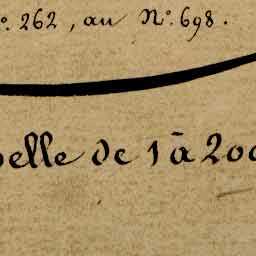 º. 262, au Nº. 698.
elle de 1 à 200